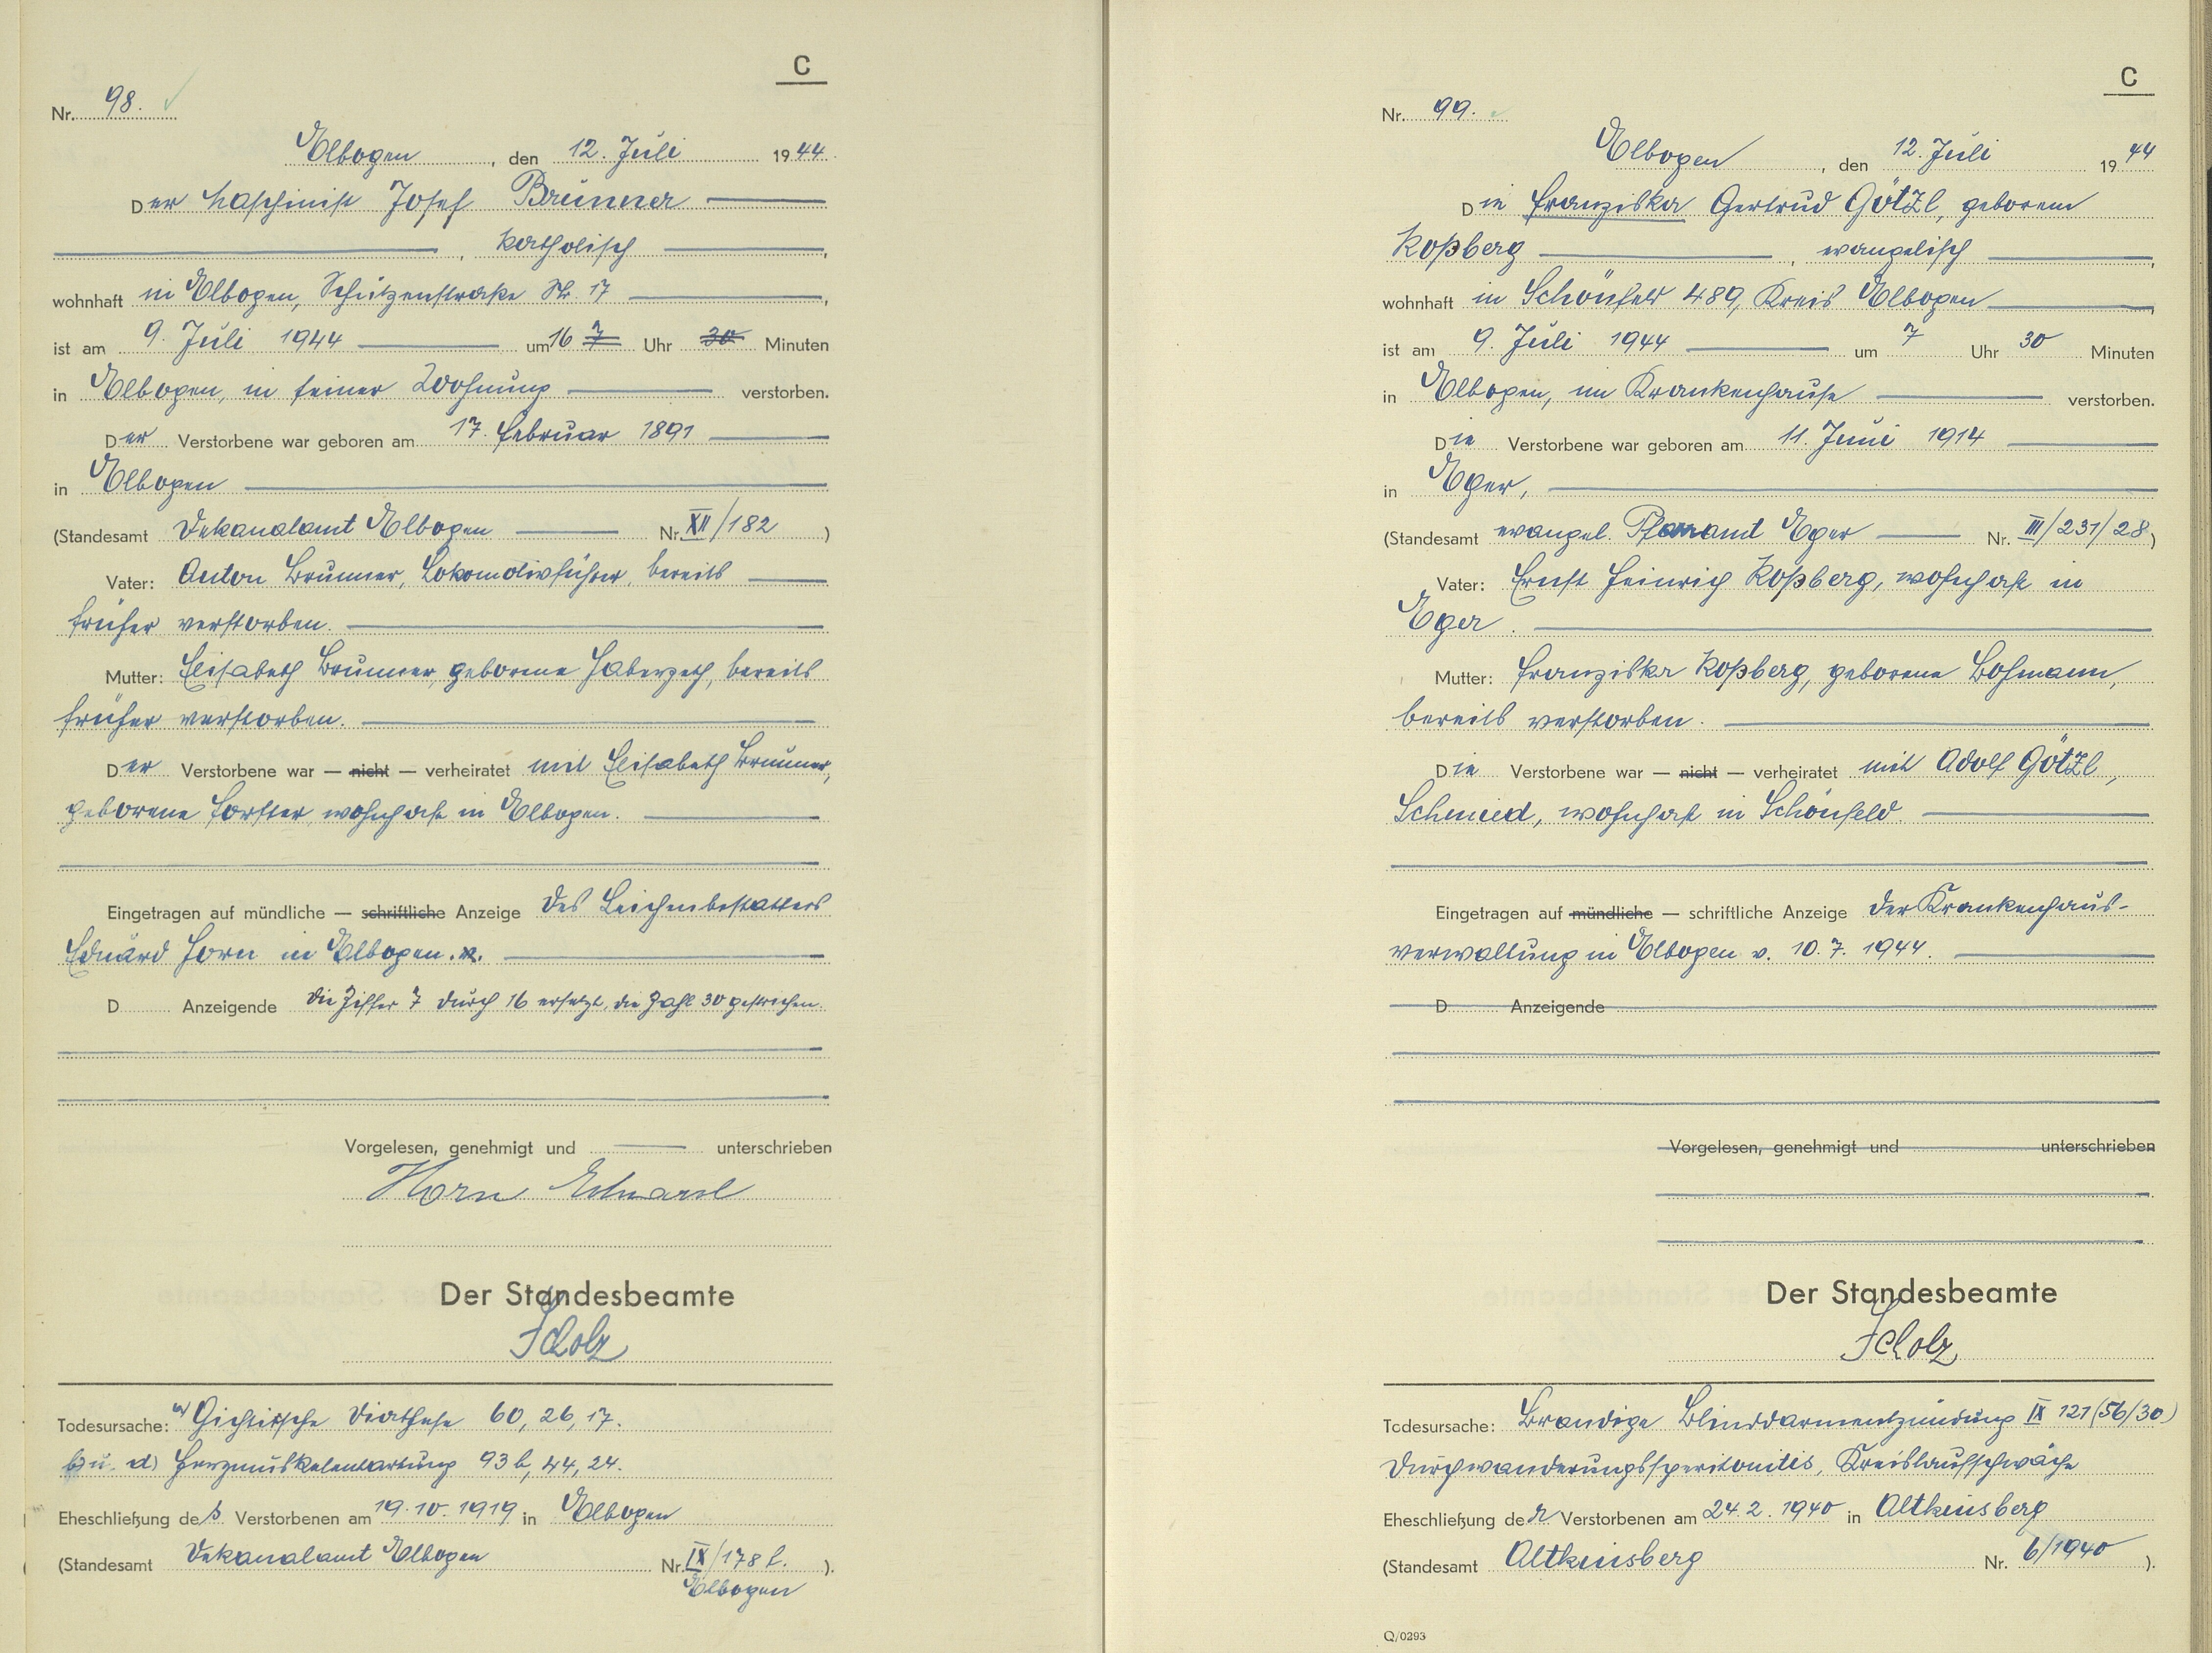 C
Nr. 98. ✓
Elbogen, den 12. Juli 1944.
Der Maschinist Josef Brunner
, katholisch ,
wohnhaft in Elbogen, Schützenstraße Nr. 17 ,
ist am 9. Juli 1944 um 16 7 Uhr 30 Minuten
in Elbogen, in seiner Wohnung verstorben.
Der Verstorbene war geboren am 17. Februar 1891
in Elbogen
(Standesamt Dekanalamt Elbogen Nr. XII/182 )
Vater: Anton Brunner, Lokomotivführer, bereits
früher verstorben.
Mutter: Elisabeth Brunner, geborene Haberzeth, bereits
früher verstorben.
Der Verstorbene war — nicht — verheiratet mit Elisabeth Brunner,
geborene Forster, wohnhaft in Elbogen.
Eingetragen auf mündliche — schriftliche Anzeige des Leichenbestatters
Eduard Horn in Elbogen.
D Anzeigende Die Ziffer 7 durch 16 ersetzt, die Zahl 30 gestrichen.
Vorgelesen, genehmigt und unterschrieben
Horn Eduard
Der Standesbeamte
Scholz
Todesursache: a) Gichtische Diathese 60, 26, 17.
b) u. d) Herzmuskelentartung 93 b, 44, 24.
Eheschließung des Verstorbenen am 19.10.1919 in Elbogen
(Standesamt Dekanalamt Elbogen Nr. IX/178 f. ).
Elbogen
C
Nr. 99. ✓
Elbogen, den 12. Juli 1944
Die Franziska Gertrud Götzl, geborene
Roßberg , evangelisch ,
wohnhaft in Schönfeld 489, Kreis Elbogen ,
ist am 9. Juli 1944 um 7 Uhr 30 Minuten
in Elbogen, im Krankenhause verstorben.
Die Verstorbene war geboren am 11. Juni 1914
in Eger,
(Standesamt evangel. Pfarramt Eger Nr. III/231/28 )
Vater: Ernst Heinrich Roßberg, wohnhaft in
Eger.
Mutter: Franziska Roßberg, geborene Lohmann,
bereits verstorben.
Die Verstorbene war — nicht — verheiratet mit Adolf Götzl,
Schmied, wohnhaft in Schönfeld.
Eingetragen auf mündliche — schriftliche Anzeige der Krankenhaus-
verwaltung in Elbogen v. 10.7.1944.
D Anzeigende
Vorgelesen, genehmigt und unterschrieben
Der Standesbeamte
Scholz
Todesursache: Brandige Blinddarmentzündung IX 121 (56/30)
Durchwanderungsperitonitis, Kreislaufschwäche
Eheschließung der Verstorbenen am 24.2.1940 in Altkinsberg
(Standesamt Altkinsberg Nr. 6/1940 ).
Q/0293